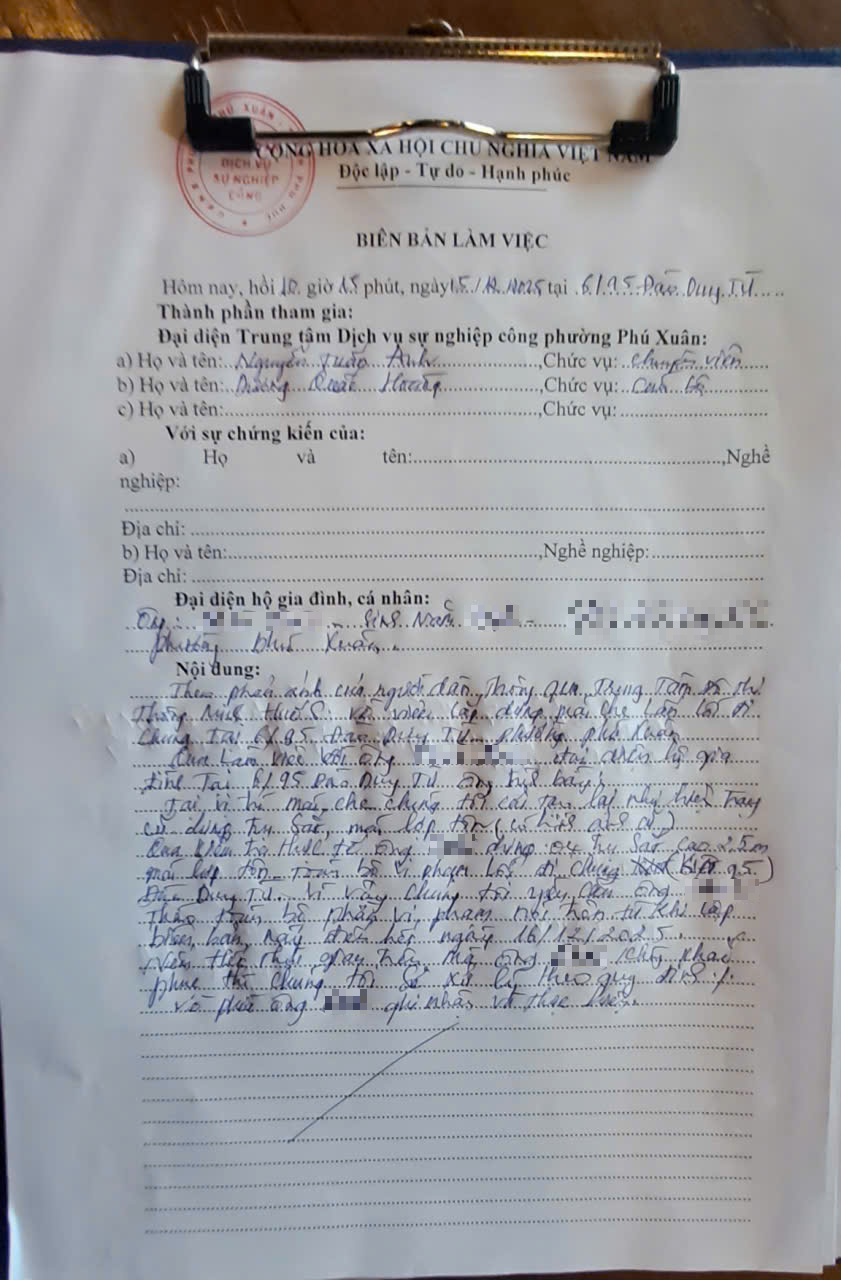 DỊCH VỤ
SỰ NGHIỆP
CÔNG
CỘNG HÒA XÃ HỘI CHỦ NGHĨA VIỆT NAM
Độc lập - Tự do - Hạnh phúc
BIÊN BẢN LÀM VIỆC
Hôm nay, hồi 10 giờ 15 phút, ngày 15/12/2025 tại 6/95 Đào Duy Từ
Thành phần tham gia:
Đại diện Trung tâm Dịch vụ sự nghiệp công phường Phú Xuân:
a) Họ và tên: Nguyễn Tuấn Anh, Chức vụ: chuyên viên
b) Họ và tên: Hoàng, Chức vụ: Cán bộ
c) Họ và tên:, Chức vụ:
Với sự chứng kiến của:
a) Họ và tên:, Nghề
nghiệp:
Địa chỉ:
b) Họ và tên:, Nghề nghiệp:
Địa chỉ:
Đại diện hộ gia đình, cá nhân:
Ông: sinh năm
phường Phú Xuân.
Nội dung:
Theo phản ánh của người dân, thông qua Trung Tâm
về việc lắp dựng mái che lấn lối đi
chung Tại 6/95 Đào Duy Từ phường phú Xuân
Qua làm việc với ông đại diện hộ gia
đình Tại 6/95 Đào Duy Từ ông trình bày:
Tại vị trí mái che chúng tôi cải tạo lại như hiện trạng
cũ dựng trụ sắt, mái lợp tôn (có hình ảnh cũ)
Qua kiểm tra thực tế, ông dựng 04 trụ sắt cao 2.5m
mái lợp tôn. Toàn bộ vi phạm lối đi chung (Kiệt 95)
Đào Duy Từ. Vì vậy chúng tôi yêu cầu ông
Tháo toàn bộ phần vi phạm nói trên từ khi lập
biên bản này đến hết ngày 16/12/2025.
Nếu thời gian trên mà ông không khắc
phục thì chúng tôi sẽ xử lý theo quy định
về phía ông ghi nhận và thực hiện.